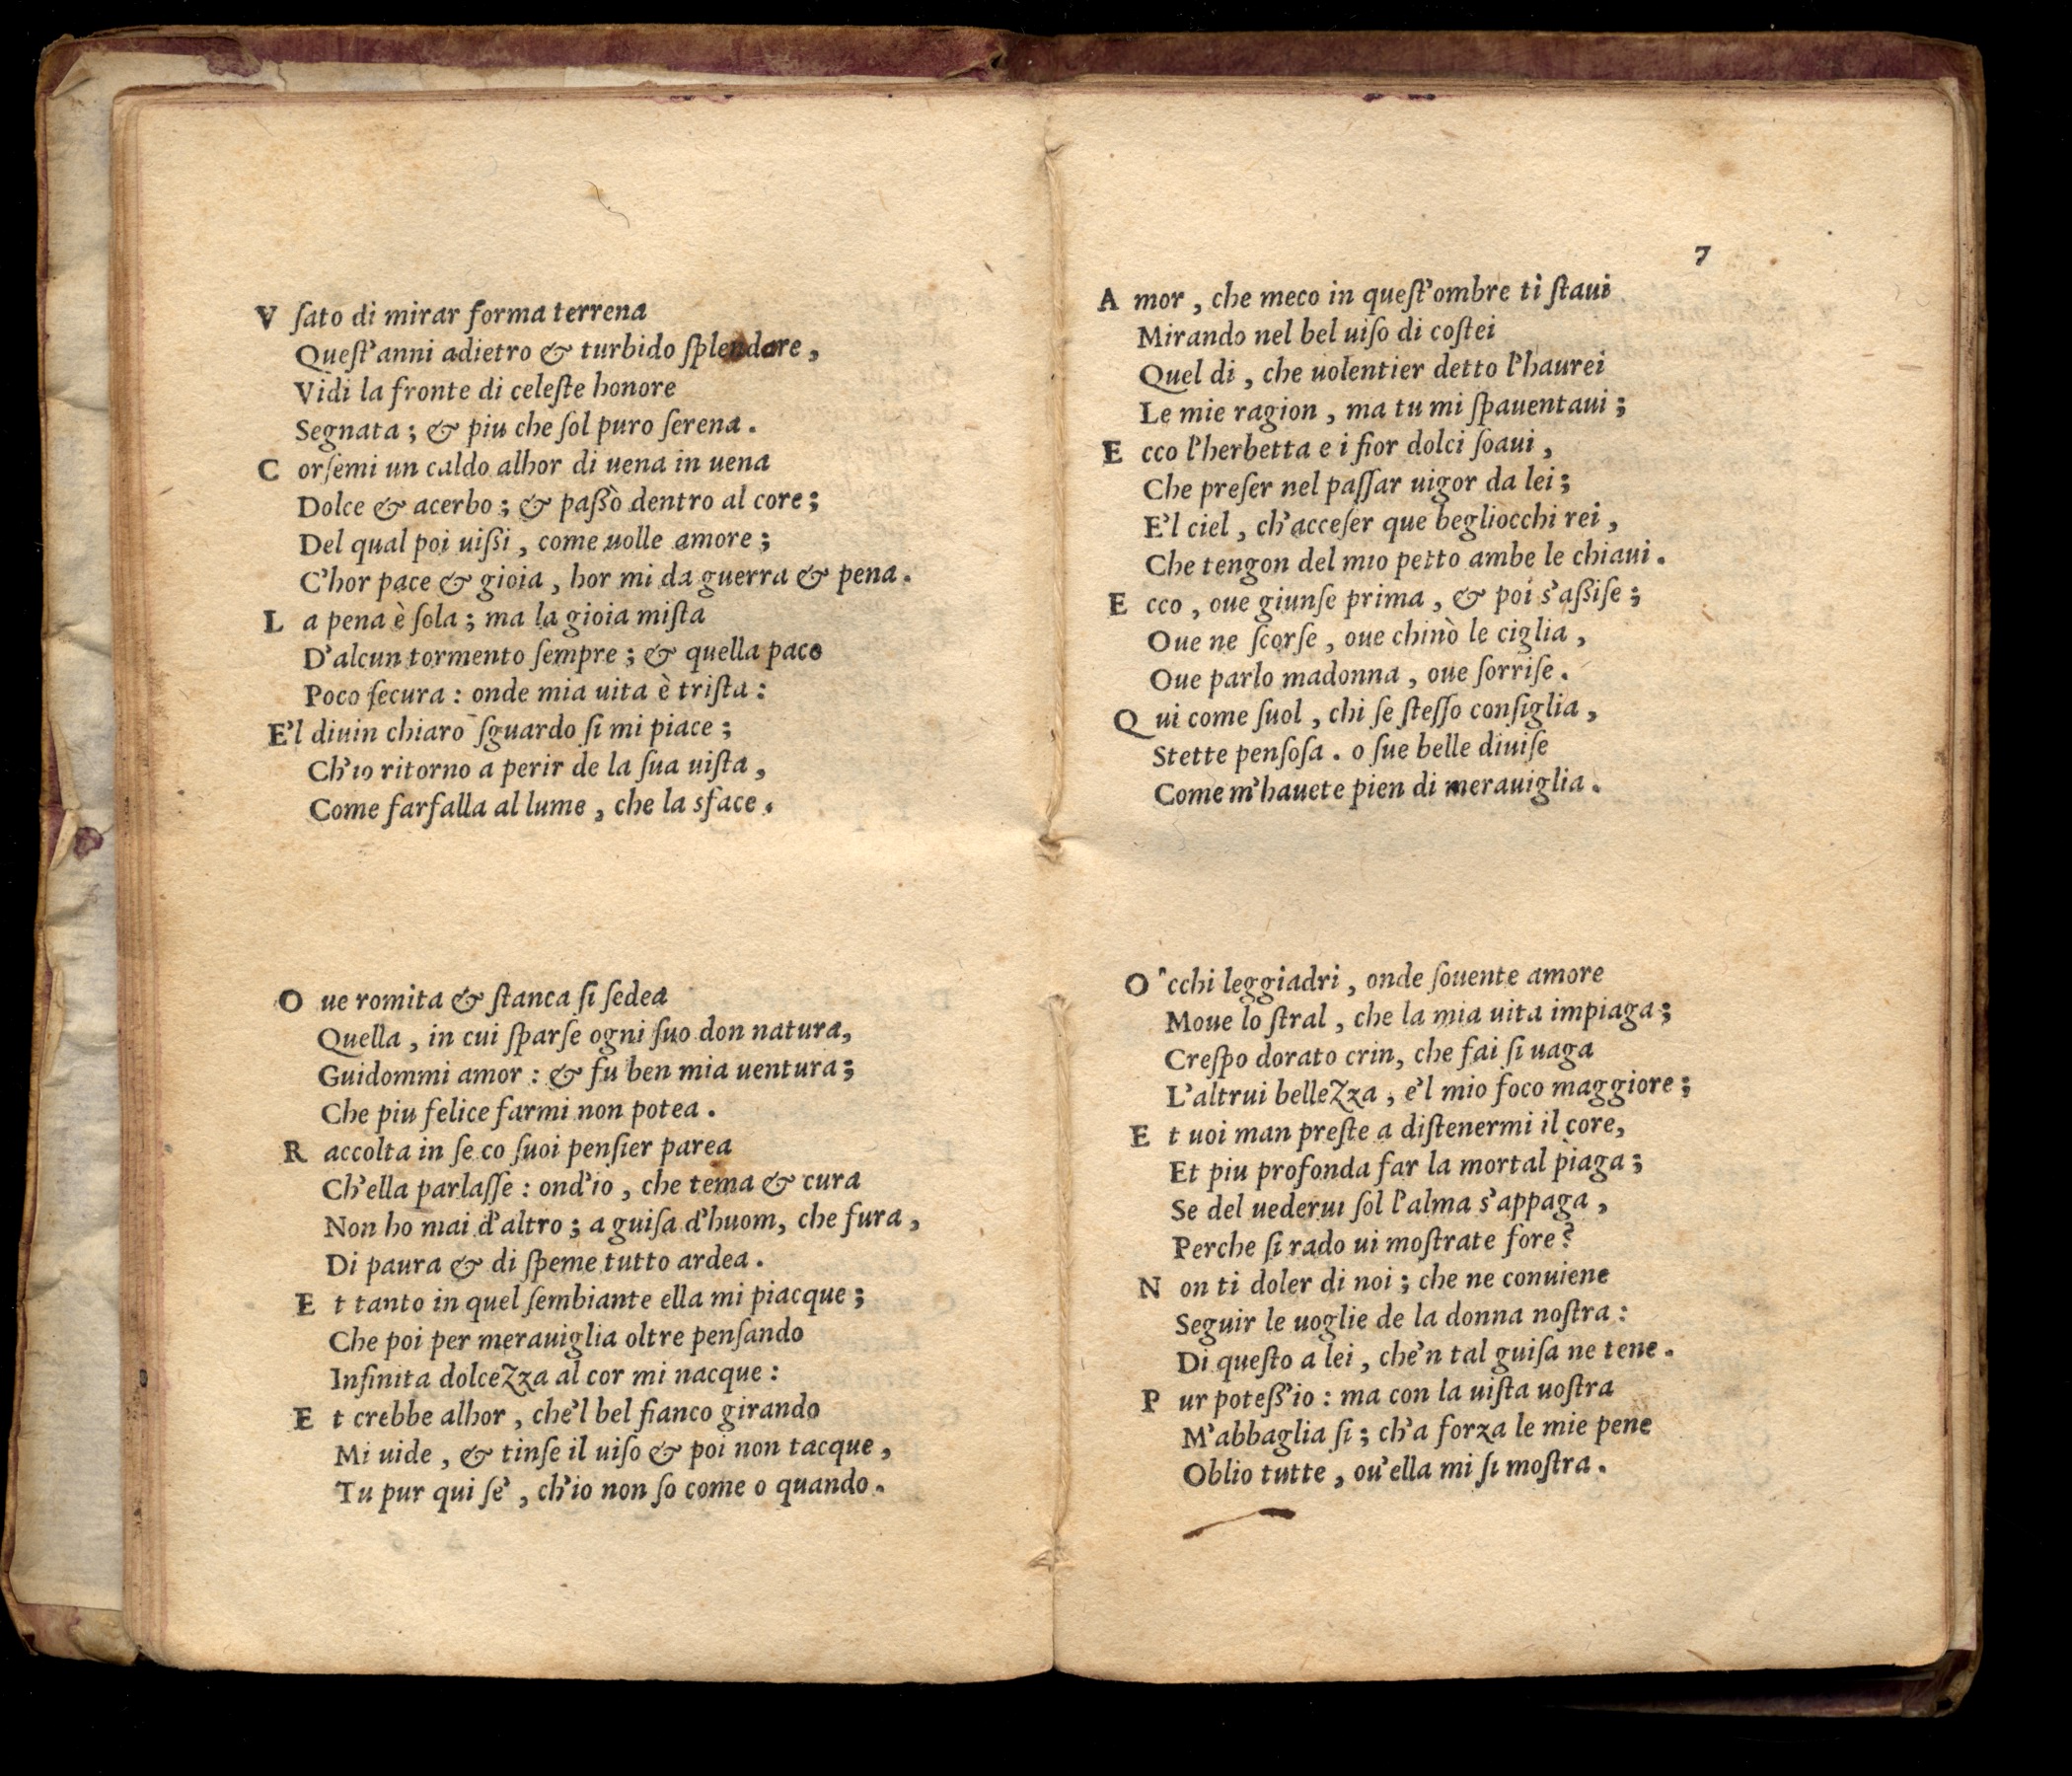 V ſato di mirar forma terrena
Queſt'anni adietro & turbido ſplendore,
Vidi la fronte di celeſte honore
Segnata; & piu che ſol puro ſerena.
C orſemi un caldo alhor di uena in uena
Dolce & acerbo; & paßò dentro al core;
Del qual poi uißi, come uolle amore;
C'hor pace & gioia, hor mi da guerra & pena.
L a pena è ſola; ma la gioia miſta
D'alcun tormento ſempre; & quella pace
Poco ſecura: onde mia uita è triſta:
E'l diuin chiaro ſguardo ſi mi piace;
Ch'io ritorno a perir de la ſua uiſta,
Come farfalla al lume, che la sface.
O ue romita & ſtanca ſi ſedea
Quella, in cui ſparſe ogni ſuo don natura,
Guidommi amor: & fu ben mia uentura;
Che piu felice farmi non potea.
R accolta in ſe co ſuoi penſier parea
Ch'ella parlaſſe: ond'io, che tema & cura
Non ho mai d'altro; a guiſa d'huom, che fura,
Di paura & di ſpeme tutto ardea.
E t tanto in quel ſembiante ella mi piacque;
Che poi per merauiglia oltre penſando
Infinita dolcezza al cor mi nacque:
E t crebbe alhor, che'l bel fianco girando
Mi uide, & tinſe il uiſo & poi non tacque,
Tu pur qui ſe', ch'io non ſo come o quando.
7
A mor, che meco in queſt'ombre ti ſtaui
Mirando nel bel uiſo di coſtei
Quel di, che uolentier detto l'haurei
Le mie ragion, ma tu mi ſpauentaui;
E cco l'herbetta e i fior dolci ſoaui,
Che preſer nel paſſar uigor da lei;
E'l ciel, ch'acceſer que begliocchi rei,
Che tengon del mio petto ambe le chiaui.
E cco, oue giunſe prima, & poi s'aßiſe;
Oue ne ſcorſe, oue chinò le ciglia,
Oue parlo madonna, oue ſorriſe.
Q ui come ſuol, chi ſe ſteſſo conſiglia,
Stette penſoſa. o ſue belle diuiſe
Come m'hauete pien di merauiglia.
O cchi leggiadri, onde ſouente amore
Moue lo ſtral, che la mia uita impiaga;
Creſpo dorato crin, che fai ſi uaga
L'altrui bellezza, e'l mio foco maggiore;
E t uoi man preſte a diſtenermi il core,
Et piu profonda far la mortal piaga;
Se del uederui ſol l'alma s'appaga,
Perche ſi rado ui moſtrate fore?
N on ti doler di noi; che ne conuiene
Seguir le uoglie de la donna noſtra:
Di queſto a lei, che'n tal guiſa ne tene.
P ur poteß'io: ma con la uiſta uoſtra
M'abbaglia ſi; ch'a forza le mie pene
Oblio tutte, ou'ella mi ſi moſtra.